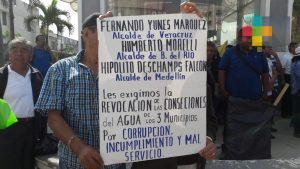 FERNANDO YUNES MARQUEZ
Alcalde de Veracruz
HUMBERTO MORELLI
Alcalde de B. del RIO
HIPOLITO DESCHAMPS FALCON
Alcalde de Medellín
Les exigimos la
REVOCACION DE LAS CONSECIONES
del AGUA DE LOS 3 MUNICIPIOS.
Por CORRUPCION,
INCUMPLIMIENTO Y MAL
SERVICIO.